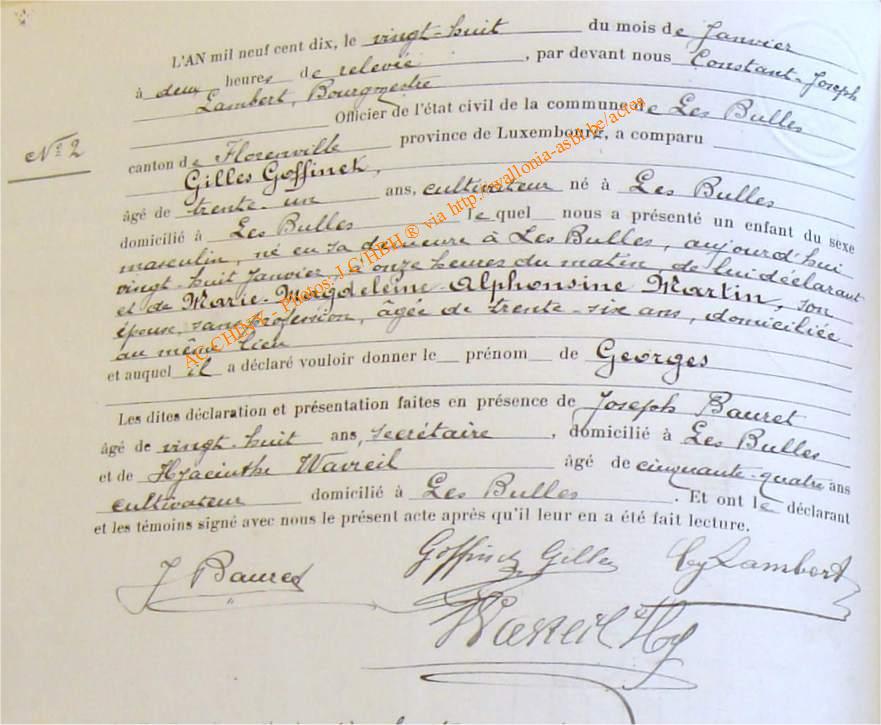 L'AN mil neuf cent dix, le vingt-huit du mois de Janvier
à deux heures de relevée, par devant nous Constant-Joseph
Lambert, Bourgmestre
Officier de l'état civil de la commune de Les Bulles
Nº 2
canton de Florenville province de Luxembourg, a comparu
Gilles Goffinet,
âgé de trente-un ans, cultivateur né à Les Bulles
domicilié à Les Bulles lequel nous a présenté un enfant du sexe
masculin, né en sa demeure à Les Bulles, aujourd'hui
vingt-huit Janvier, à onze heures du matin de lui déclarant
et de Marie-Magdeleine-Alphonsine Martin, son
épouse, sans profession, âgée de trente-six ans, domiciliée
au même lieu
et auquel il a déclaré vouloir donner le prénom de Georges
Les dites déclaration et présentation faites en présence de Joseph Bauret
âgé de vingt-huit ans, secrétaire, domicilié à Les Bulles
et de Hyacinthe Wavreil âgé de cinquante-quatre ans
cultivateur domicilié à Les Bulles. Et ont le déclarant
et les témoins signé avec nous le présent acte après qu'il leur en a été fait lecture.
J Bauret Goffinet Gilles Cy Lambert
Wavreil Hy
AC-CHINY - Photos: J.C/HBH ® via http://wallonia-asbl.be/actes